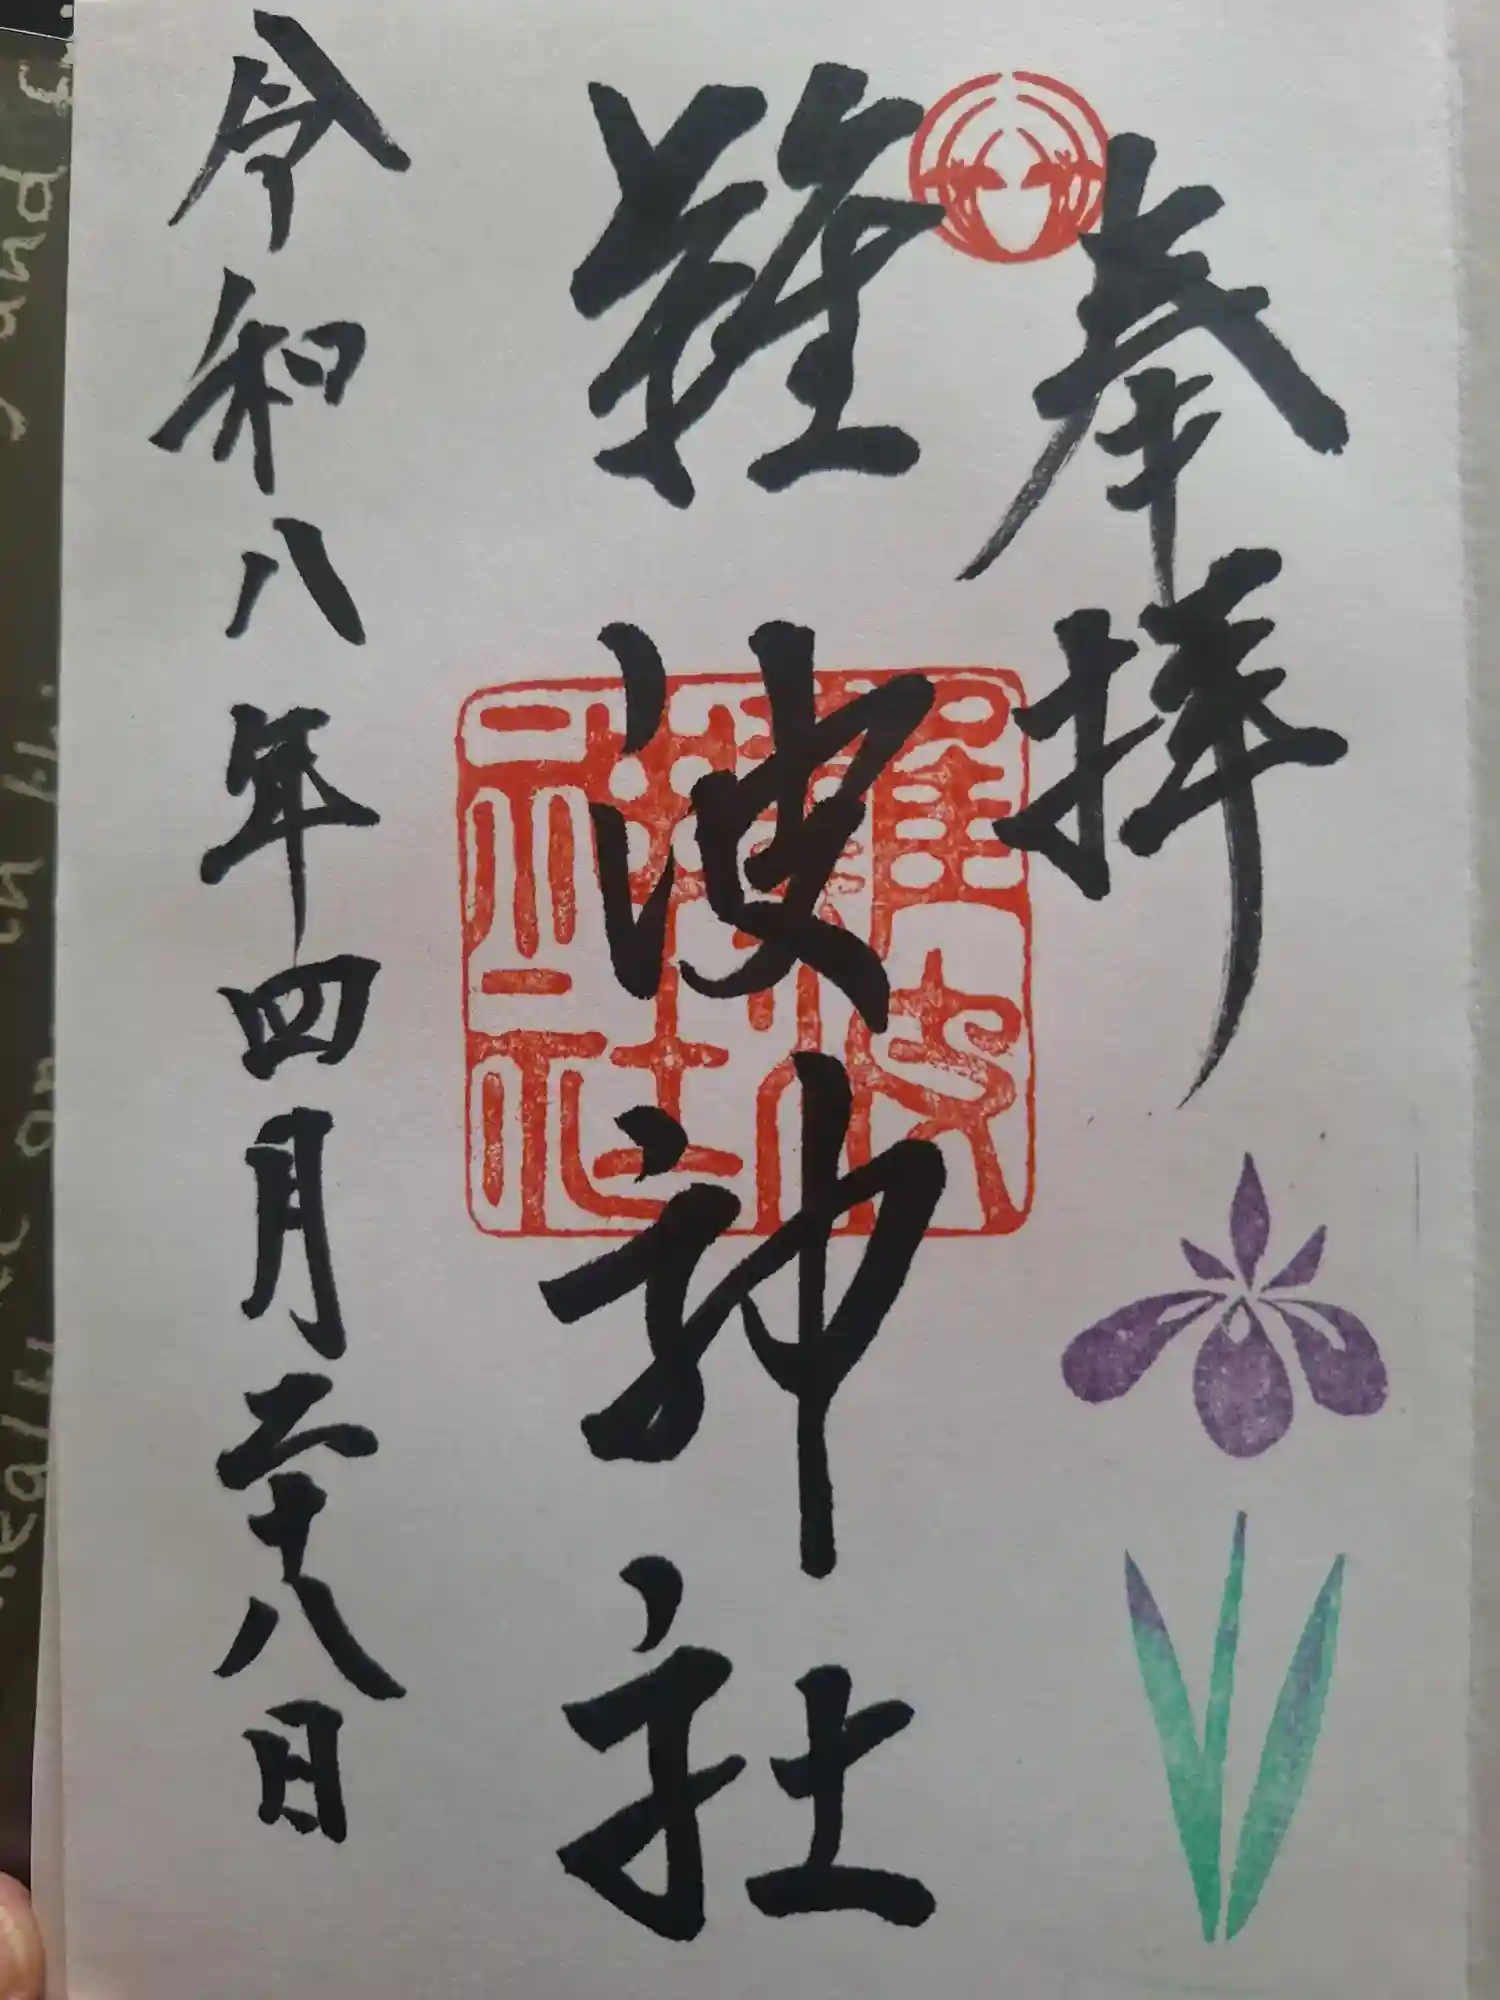 奉拝
難波神社
令和八年四月二十八日
難波
神社